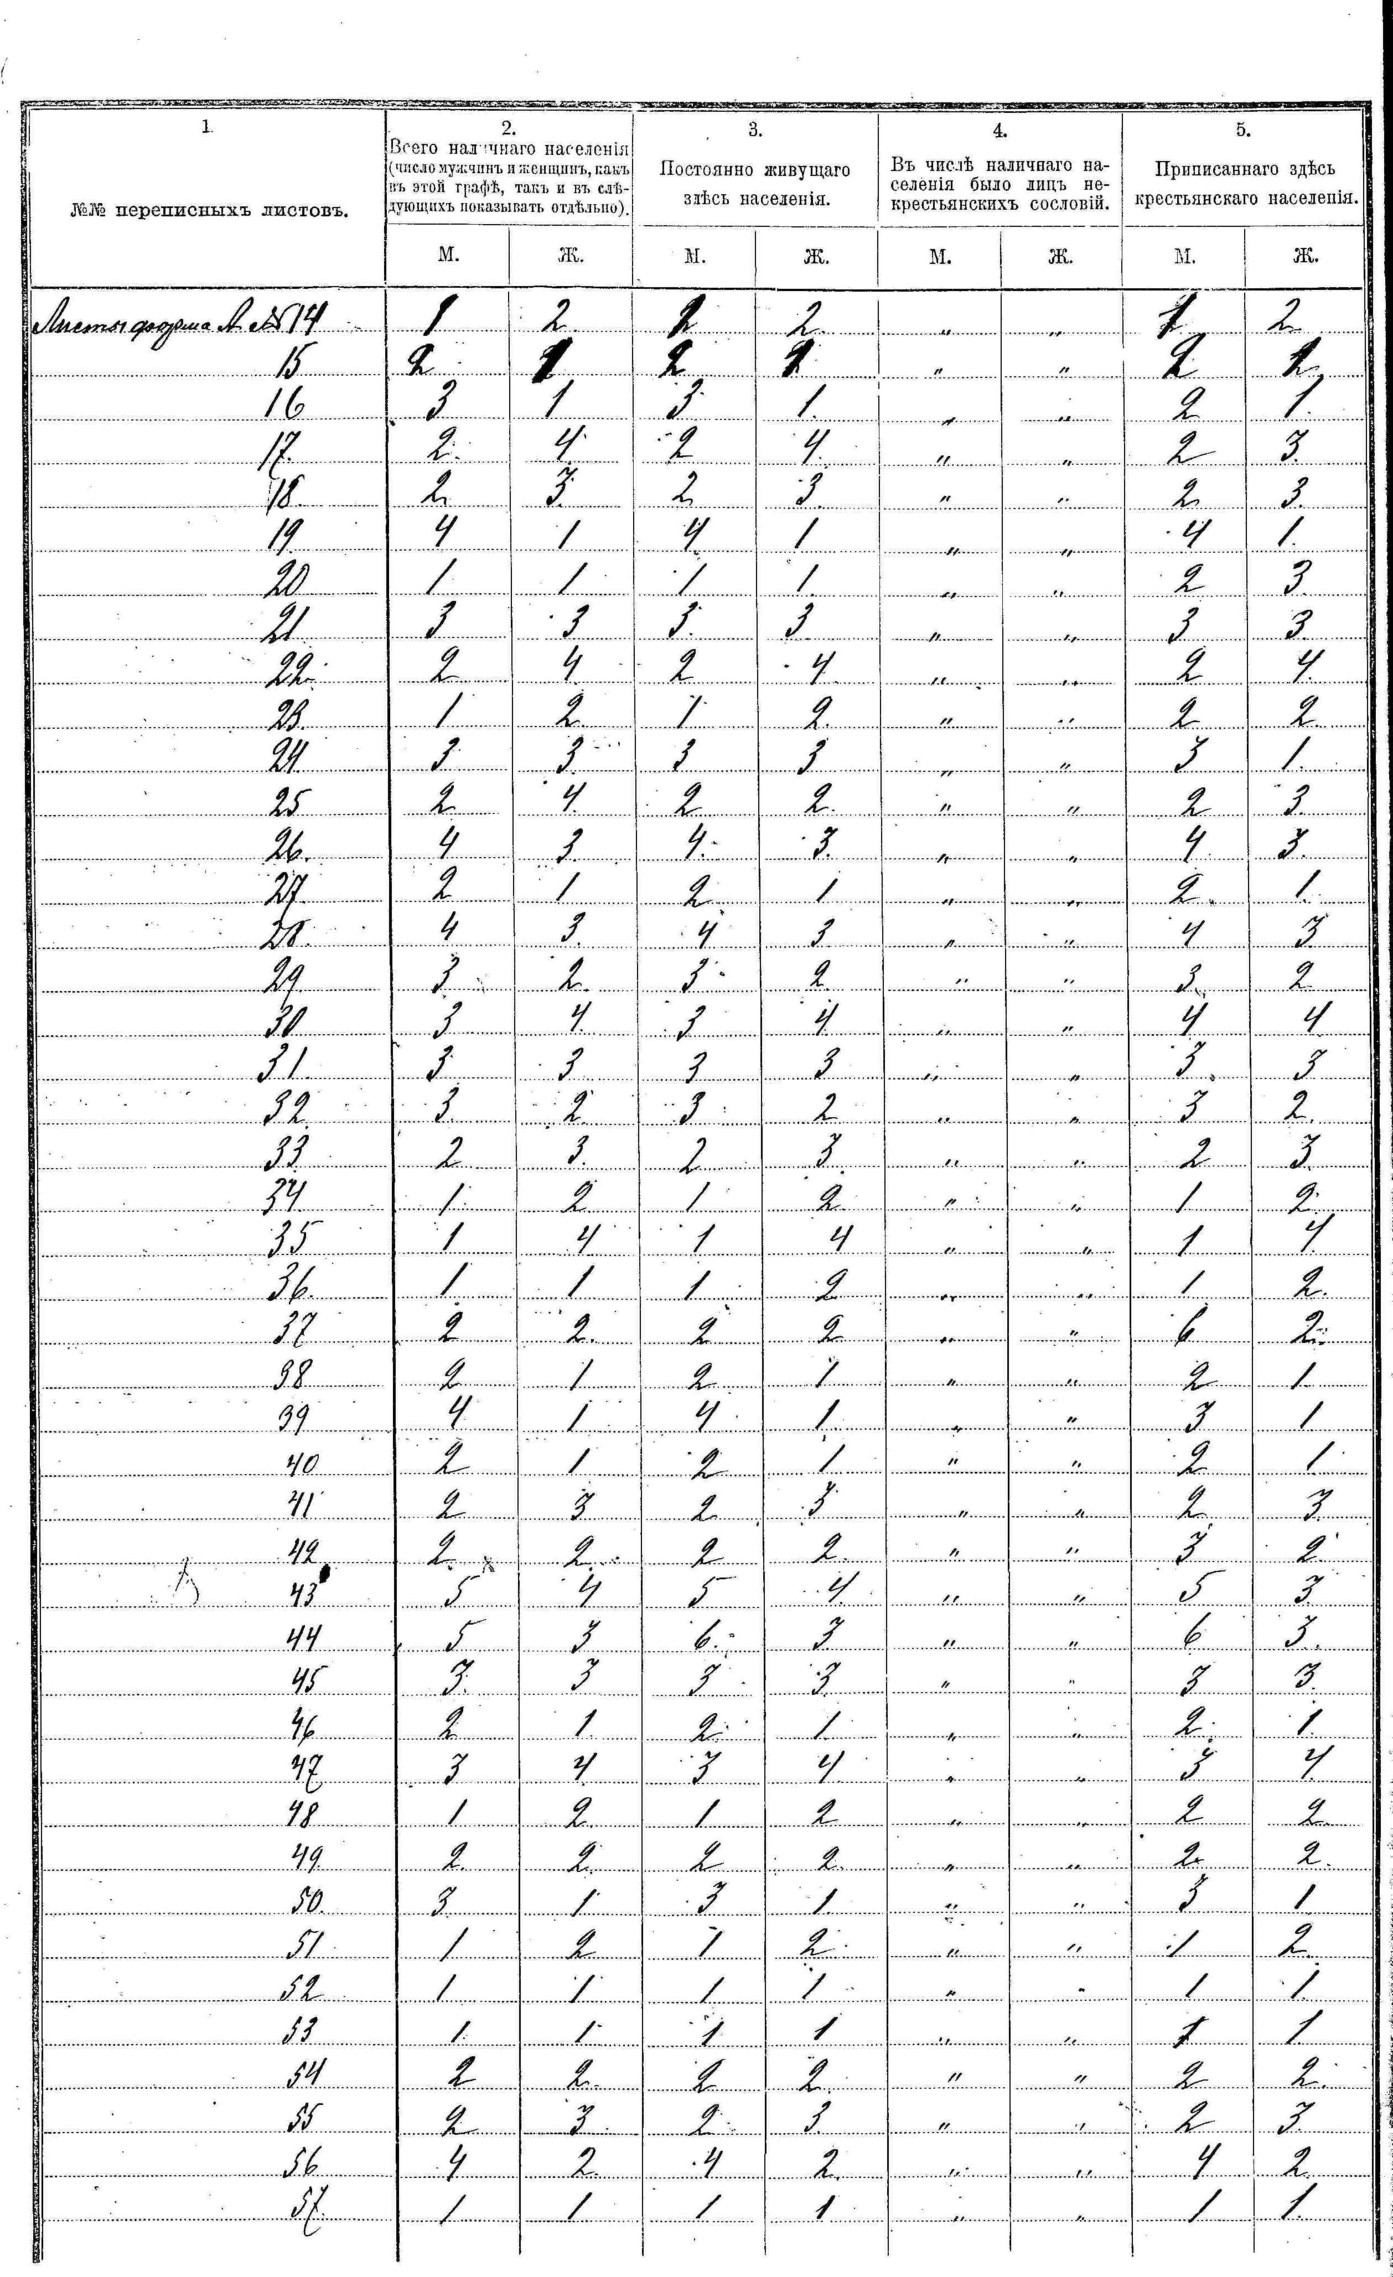 1. 2. 3. 4. 5.
№№ переписныхъ листовъ.
Всего наличнаго населенія
(число мужчинъ и женщинъ, какъ
въ этой графѣ, такъ и въ слѣ-
дующихъ показывать отдѣльно).
Постоянно живущаго
здѣсь населенія.
Въ числѣ наличнаго на-
селенія было лицъ не-
крестьянскихъ сословій.
Приписаннаго здѣсь
крестьянскаго населенія.
М. Ж. М. Ж. М. Ж. М. Ж.
Листы форма А №№ 14 1 2 1 2 „ „ 1 2
15 2 1 2 1 „ „ 2 1
16 3 1 3 1 „ „ 2 1
17 2 4 2 4 „ „ 2 3
18 2 3 2 3 „ „ 2 3
19 4 1 4 1 „ „ 4 1
20 1 1 1 1 „ „ 2 3
21 3 3 3 3 „ „ 3 3
22 2 4 2 4 „ „ 2 4
23 1 2 1 2 „ „ 2 2
24 3 3 3 3 „ „ 3 1
25 2 4 2 2 „ „ 2 3
26 4 3 4 3 „ „ 4 3
27 2 1 2 1 „ „ 2 1
28 4 3 4 3 „ „ 4 3
29 3 2 3 2 „ „ 3 2
30 3 4 3 4 „ „ 4 4
31 3 3 3 3 „ „ 3 3
32 3 2 3 2 „ „ 3 2
33 2 3 2 3 „ „ 2 3
34 1 2 1 2 „ „ 1 2
35 1 4 1 4 „ „ 1 4
36 1 1 1 2 „ „ 1 2
37 2 2 2 2 „ „ 6 2
38 2 1 2 1 „ „ 2 1
39 4 1 4 1 „ „ 3 1
40 2 1 2 1 „ „ 2 1
41 2 3 2 3 „ „ 2 3
42 2 2 2 2 „ „ 3 2
43 5 4 5 4 „ „ 5 3
44 5 3 6 3 „ „ 6 3
45 3 3 3 3 „ „ 3 3
46 2 1 2 1 „ „ 2 1
47 3 4 3 4 „ „ 3 4
48 1 2 1 2 „ „ 2 2
49 2 2 2 2 „ „ 2 2
50 3 1 3 1 „ „ 3 1
51 1 2 1 2 „ „ 1 2
52 1 1 1 1 „ „ 1 1
53 1 1 1 1 „ „ 1 1
54 2 2 2 2 „ „ 2 2
55 2 3 2 3 „ „ 2 3
56 4 2 4 2 „ „ 4 2
57 1 1 1 1 „ „ 1 1